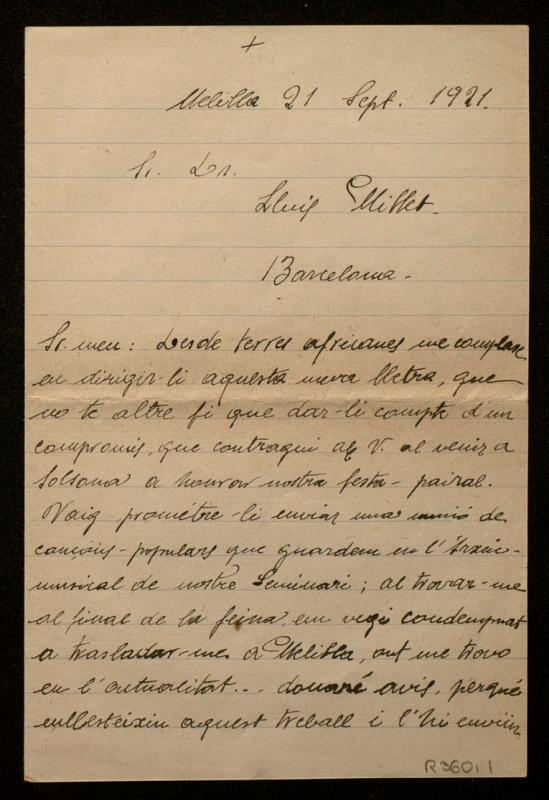 +
Melilla 21 Sept. 1921.
Sr. Dr.
Lluis Millet.
Barcelona-
Sr. meu: Desde terres africanes me complasc
en dirigir-li aquesta meva lletra, que
no te altre fi que dar-li compte d'un
compromis, que contragui ab V. al venir a
Solsona a honrar nostra festa-pairal.
Vaig prométre-li enviar una munió de
cançons-populars que guardem en l'Arxiu-
musical de nostre Seminari; al trovar-me
al final de la feina, em vegi condempnat
a trasladar-me a Melilla, ont me trovo
en l'actualitat... donaré avis, perqué
enllesteixin aquest treball i l'hi enviin
R360,1